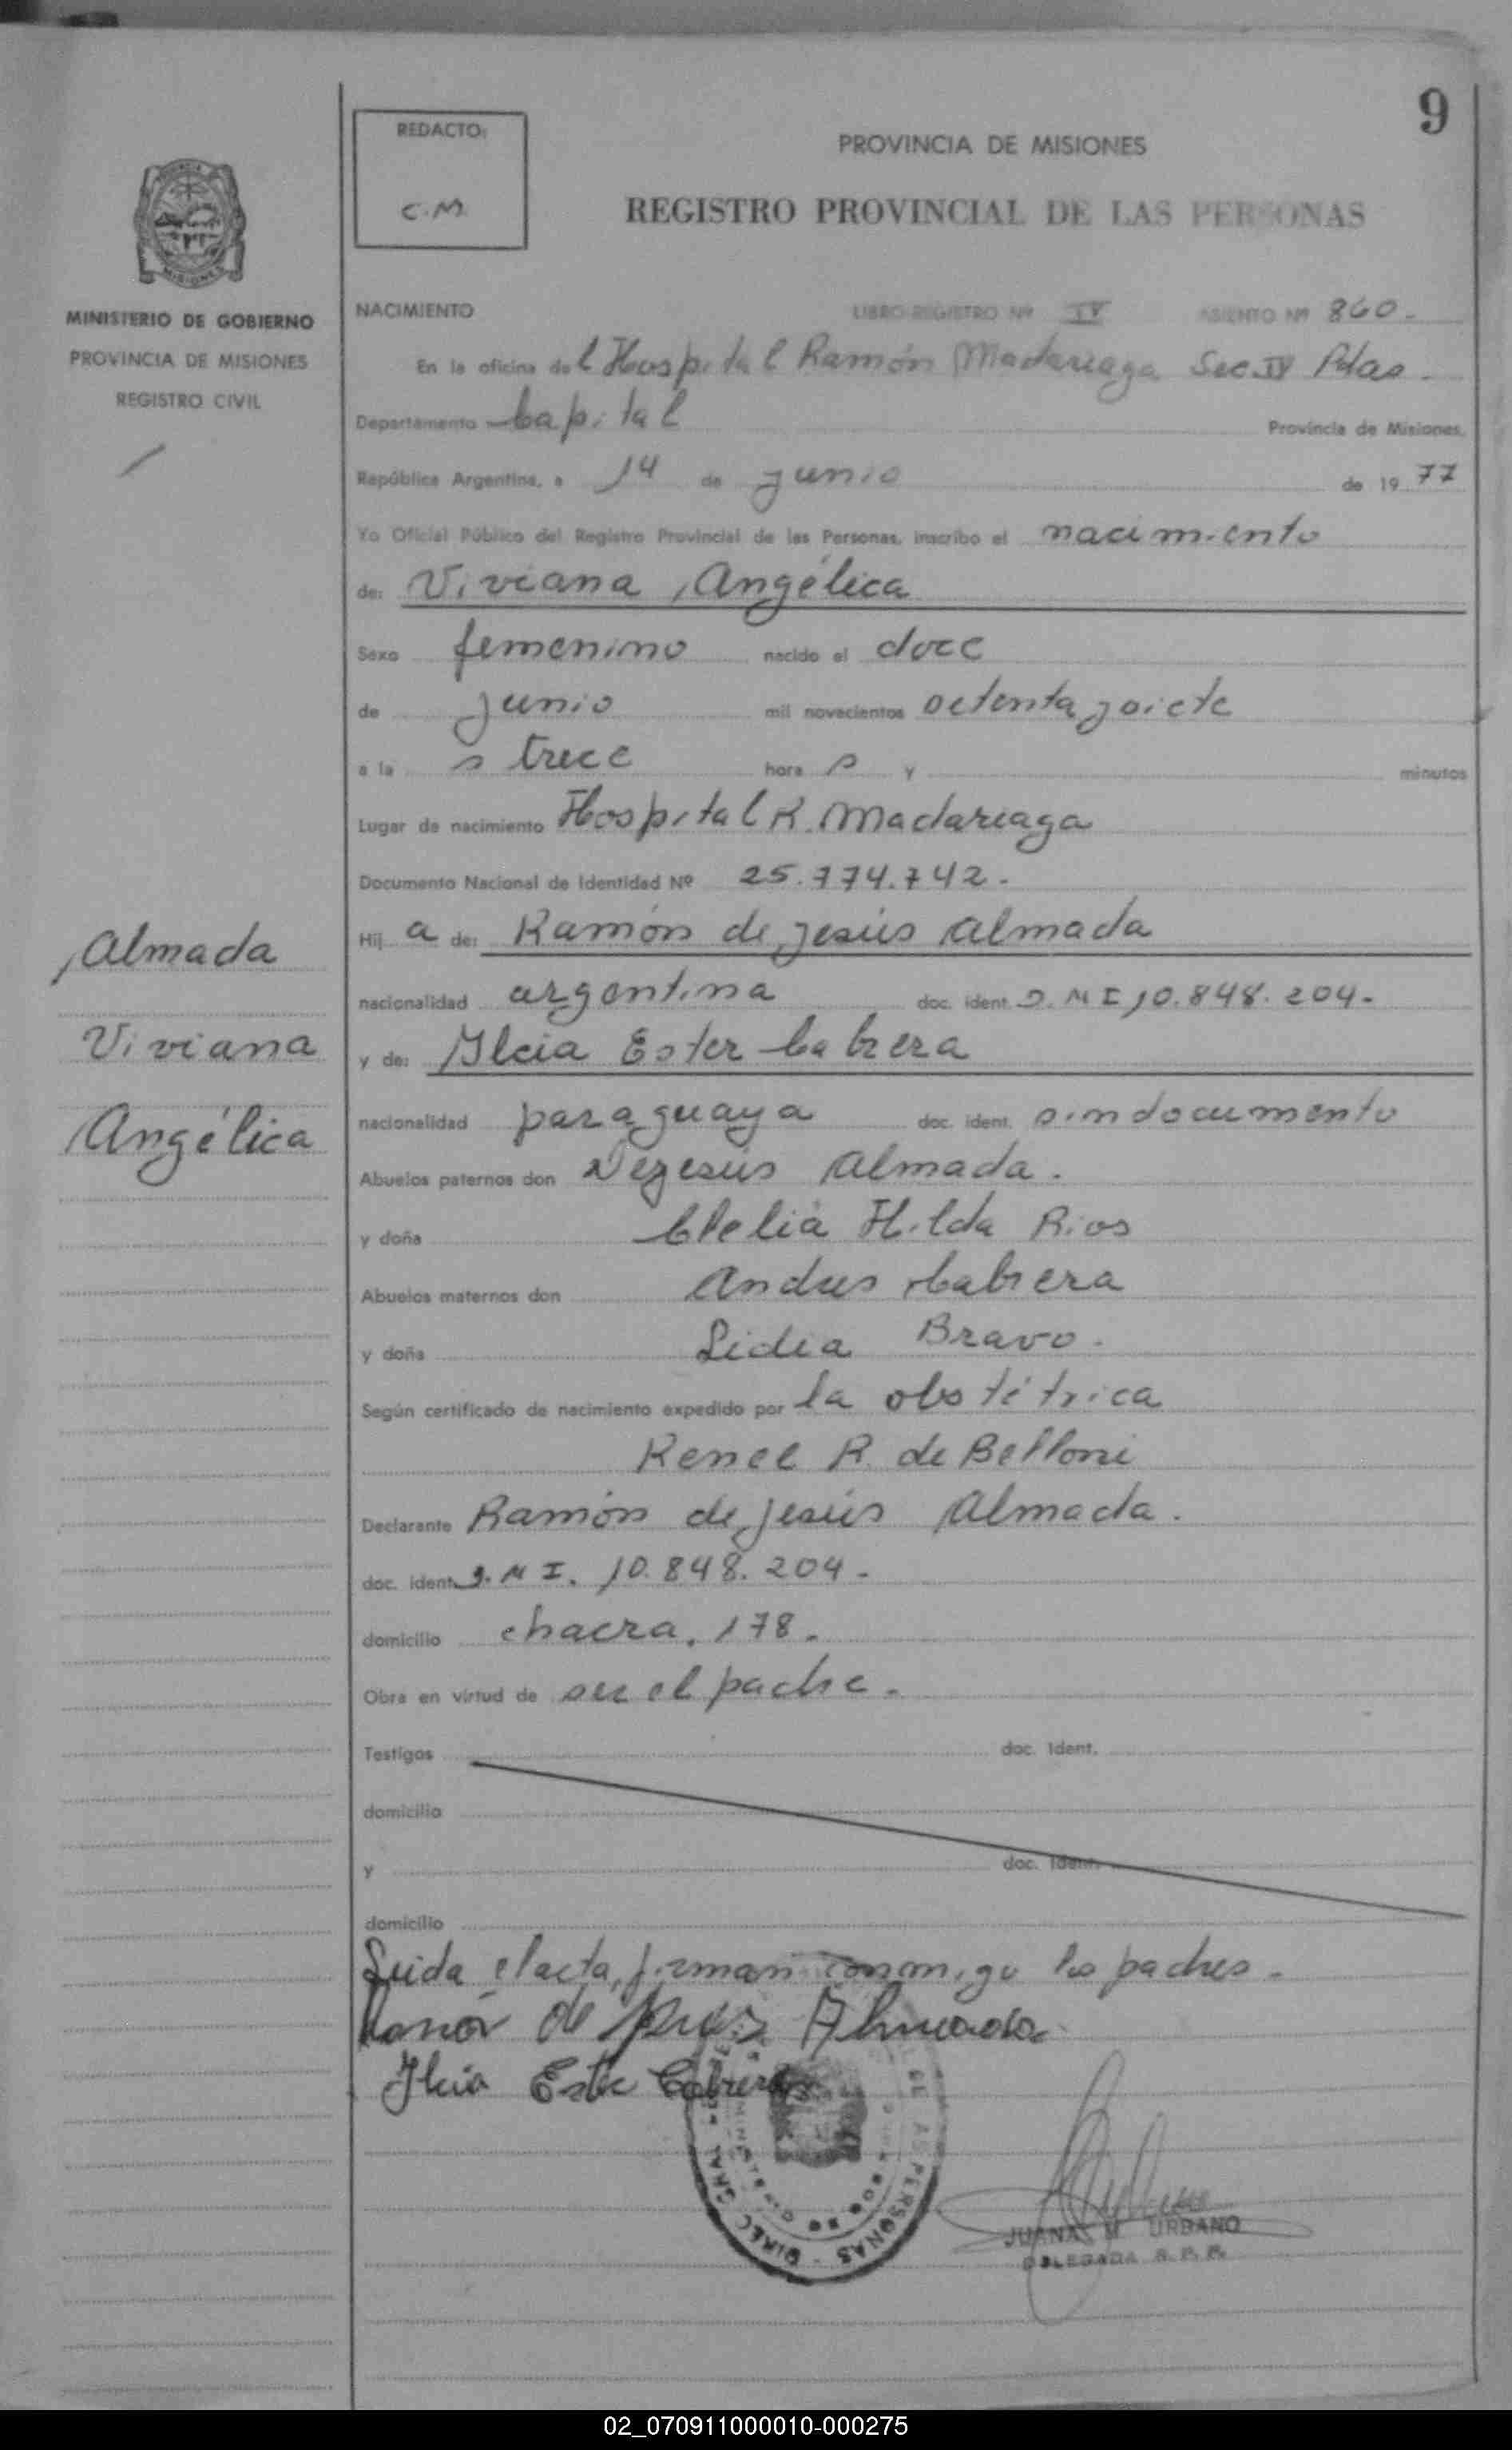 9
REDACTO:
C.M.
PROVINCIA DE MISIONES
REGISTRO PROVINCIAL DE LAS PERSONAS
MISIONES
MINISTERIO DE GOBIERNO
PROVINCIA DE MISIONES
REGISTRO CIVIL
Almada
Viviana
Angélica
NACIMIENTO LIBRO REGISTRO Nº IV ASIENTO Nº 860.
En la oficina del Hospital Ramón Madariaga Sec IV Pdas.
Departamento Capital Provincia de Misiones,
República Argentina, a 14 de junio de 1977
Yo Oficial Público del Registro Provincial de las Personas, inscribo el nacimiento
de: Viviana Angélica
Sexo femenino nacido el doce
de junio mil novecientos setenta y siete
a la s trece hora s y minutos
Lugar de nacimiento Hospital R. Madariaga
Documento Nacional de Identidad Nº 25.774.742.
Hij a de: Ramón de Jesús Almada
nacionalidad argentina doc. ident. D.N.I 10.848.204.
y de: Ilcia Ester Cabrera
nacionalidad paraguaya doc. ident. sin documento
Abuelos paternos don Dejesús Almada.
y doña Clelia Hilda Rios
Abuelos maternos don Andres Cabrera
y doña Lidia Bravo.
Según certificado de nacimiento expedido por la obstétrica
Renee R. de Belloni
Declarante Ramón de Jesús Almada.
doc. ident. D.N.I. 10.848.204.
domicilio chacra. 178.
Obra en virtud de ser el padre.
Testigos doc. Ident.
domicilio
y doc. Ident.
domicilio
Leida el acta, firman conmigo los padres.
Ramón de Jesus Almada
Ilcia Este Cabrera
DIREC. GRAL. PERSONAS
JUANA M. URBANO
DELEGADA R. P. P.
02_070911000010-000275